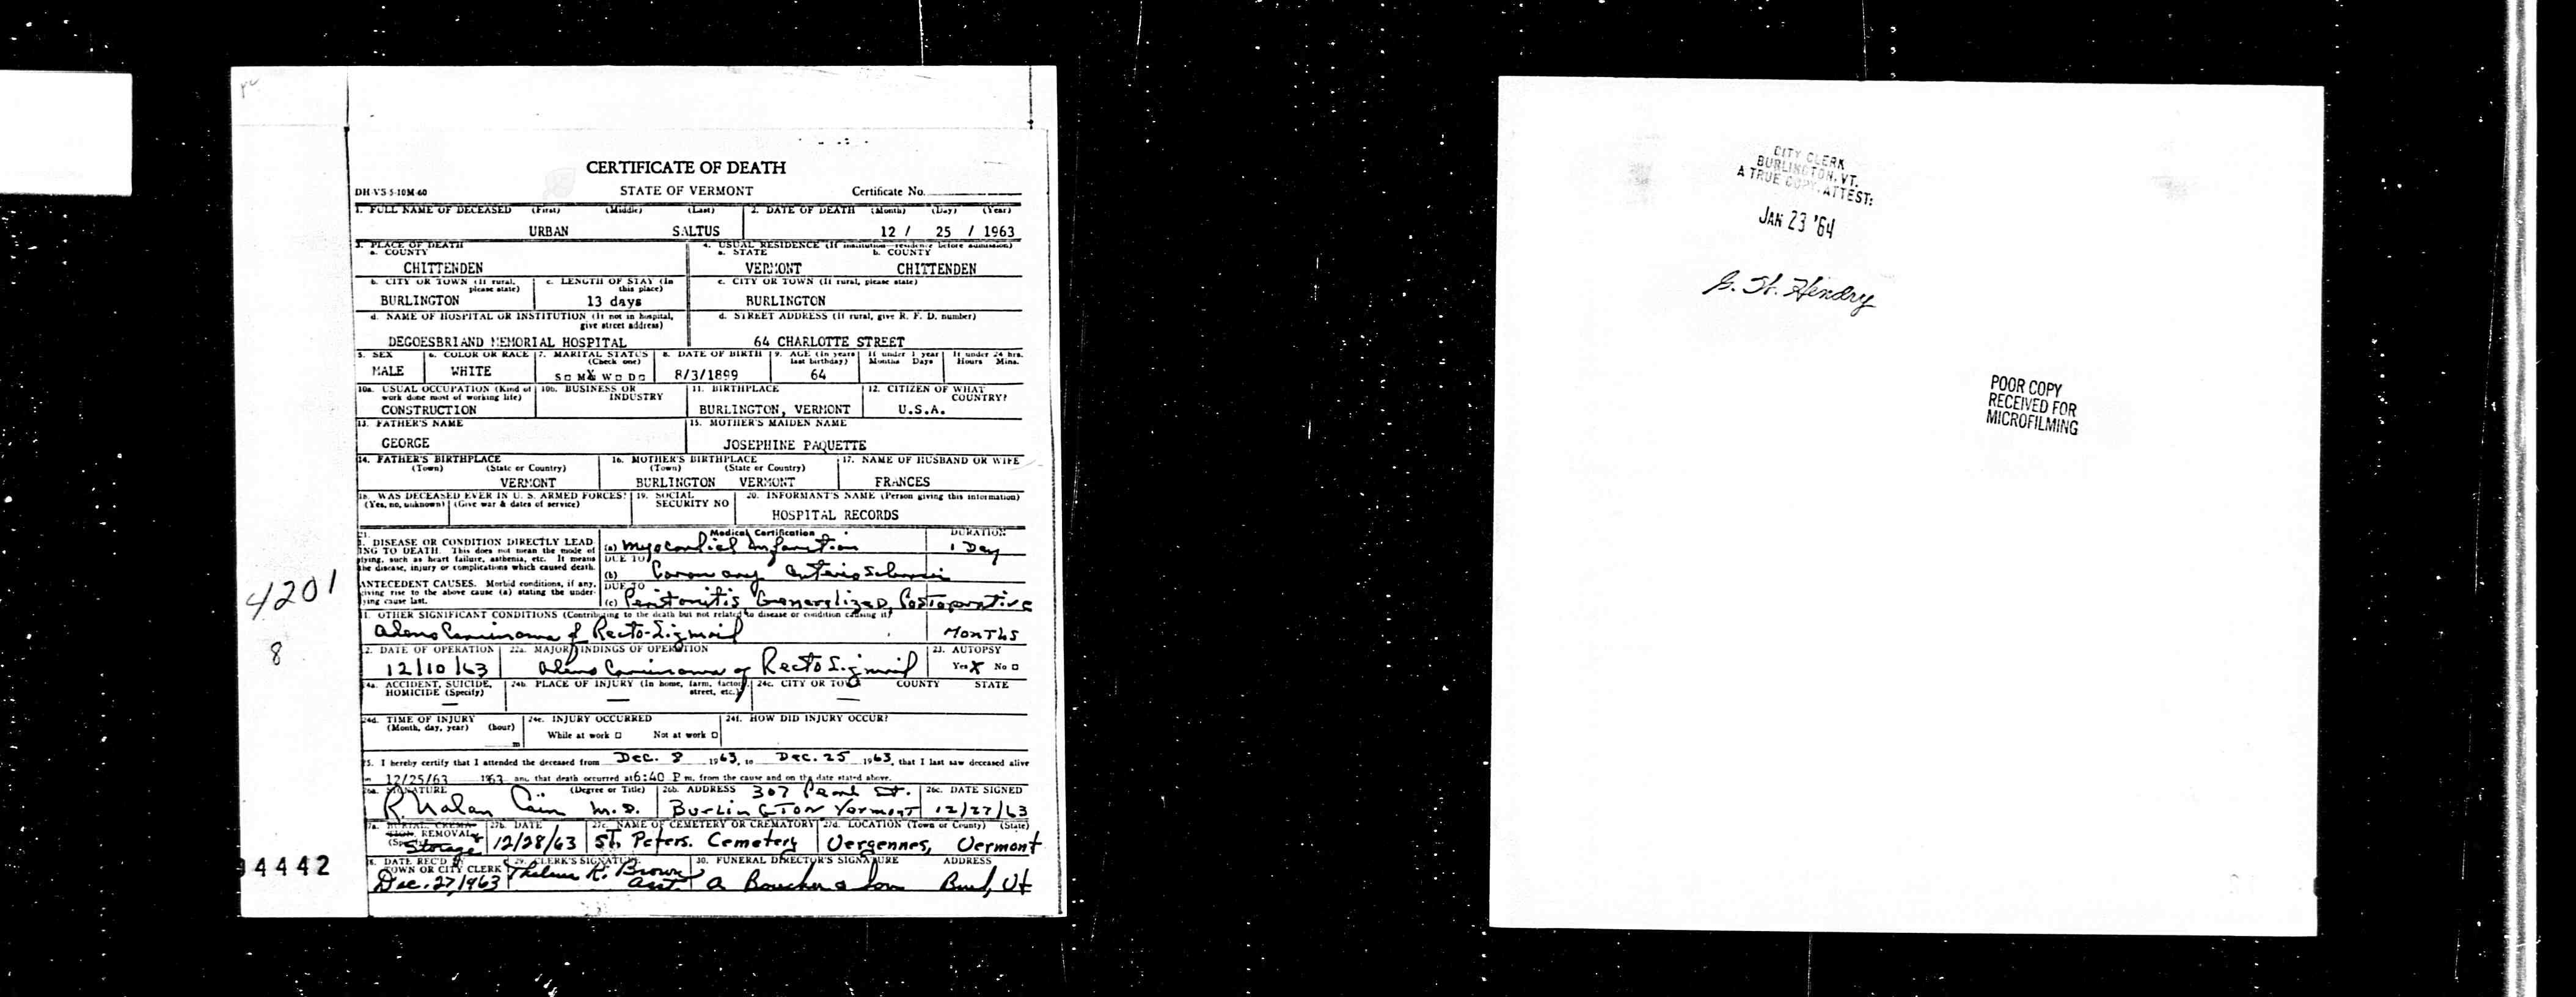 CERTIFICATE OF DEATH
DH VS 5-10M-60 STATE OF VERMONT Certificate No.
1. FULL NAME OF DECEASED (First) (Middle) (Last) 2. DATE OF DEATH (Month) (Day) (Year)
URBAN SALTUS 12 / 25 / 1963
3. PLACE OF DEATH 4. USUAL RESIDENCE (If institution—residence before admission)
a. COUNTY a. STATE b. COUNTY
CHITTENDEN VERMONT CHITTENDEN
b. CITY OR TOWN (If rural, please state) c. LENGTH OF STAY (In this place) c. CITY OR TOWN (If rural, please state)
BURLINGTON 13 days BURLINGTON
d. NAME OF HOSPITAL OR INSTITUTION (If not in hospital, give street address) d. STREET ADDRESS (If rural, give R. F. D. number)
DEGOESBRIAND MEMORIAL HOSPITAL 64 CHARLOTTE STREET
5. SEX 6. COLOR OR RACE 7. MARITAL STATUS (Check one) 8. DATE OF BIRTH 9. AGE (In years last birthday) If under 1 year Months Days If under 24 hrs. Hours Mins.
MALE WHITE S □ M X W □ D □ 8/3/1899 64
10a. USUAL OCCUPATION (Kind of work done most of working life) 10b. BUSINESS OR INDUSTRY 11. BIRTHPLACE 12. CITIZEN OF WHAT COUNTRY?
CONSTRUCTION BURLINGTON, VERMONT U.S.A.
13. FATHER'S NAME 15. MOTHER'S MAIDEN NAME
GEORGE JOSEPHINE PAQUETTE
14. FATHER'S BIRTHPLACE (Town) (State or Country) 16. MOTHER'S BIRTHPLACE (Town) (State or Country) 17. NAME OF HUSBAND OR WIFE
VERMONT BURLINGTON VERMONT FRANCES
18. WAS DECEASED EVER IN U. S. ARMED FORCES? 19. SOCIAL SECURITY NO 20. INFORMANT'S NAME (Person giving this information)
(Yes, no, unknown) (Give war & dates of service)
HOSPITAL RECORDS
21. Medical Certification DURATION
I. DISEASE OR CONDITION DIRECTLY LEAD
ING TO DEATH. This does not mean the mode of
dying, such as heart failure, asthenia, etc. It means
the disease, injury or complications which caused death.
(a) Myocardial Infarction 1 Day
DUE TO
(b) Coronary Arteriosclerosis
ANTECEDENT CAUSES. Morbid conditions, if any,
giving rise to the above cause (a) stating the under-
lying cause last.
DUE TO
(c) Peritonitis Generalized, Postoperative
4201
II. OTHER SIGNIFICANT CONDITIONS (Contributing to the death but not related to disease or condition causing it)
AdenoCarcinoma of Recto-Sigmoid MONTHS
8
22. DATE OF OPERATION 22a. MAJOR FINDINGS OF OPERATION 23. AUTOPSY
12/10/63 AdenoCarcinoma of RectoSigmoid Yes X No □
24a. ACCIDENT, SUICIDE, HOMICIDE (Specify) 24b. PLACE OF INJURY (In home, farm, factory, street, etc.) 24c. CITY OR TOWN COUNTY STATE
— — —
24d. TIME OF INJURY (Month, day, year) (hour) m 24e. INJURY OCCURRED 24f. HOW DID INJURY OCCUR?
While at work □ Not at work □
25. I hereby certify that I attended the deceased from Dec. 8 1963, to Dec. 25 1963, that I last saw deceased alive
on 12/25/63 1963 and that death occurred at 6:40 P m, from the cause and on the date stated above.
26a. SIGNATURE (Degree or Title) 26b. ADDRESS 307 Pearl St. 26c. DATE SIGNED
R. Nolan Cain M.D. Burlington Vermont 12/27/63
27a. BURIAL, CREMATION, REMOVAL (Specify) 27b. DATE 27c. NAME OF CEMETERY OR CREMATORY 27d. LOCATION (Town or County) (State)
Storage 12/28/63 St. Peters. Cemetery Vergennes, Vermont
28. DATE REC'D BY TOWN OR CITY CLERK 29. CLERK'S SIGNATURE 30. FUNERAL DIRECTOR'S SIGNATURE ADDRESS
Dec. 27, 1963 Thelma R. Brown Asst A Boucher & Son Burl, Vt
4442
CITY CLERK
BURLINGTON, VT.
A TRUE COPY, ATTEST:
JAN 23 '64
G. H. Hendry
POOR COPY
RECEIVED FOR
MICROFILMING